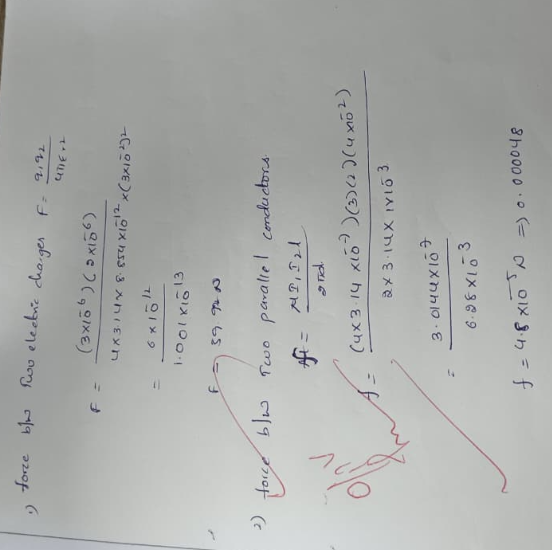 1) force b/w Two electric charges F = q₁q₂ / 4πε r²
F = (3×10⁻⁶)(2×10⁻⁶) / 4×3.14×8.854×10⁻¹²×(3×10⁻²)²
= 6×10⁻¹² / 1.001×10⁻¹³
F = 59.92 N
2) force b/w Two parallel conductors
f = μI₁I₂l / 2πd
f = (4×3.14×10⁻⁷)(3)(2)(4×10⁻²) / 2×3.14×1×10⁻³
= 3.0144×10⁻⁷ / 6.28×10⁻³
f = 4.8×10⁻⁵ N => 0.000048